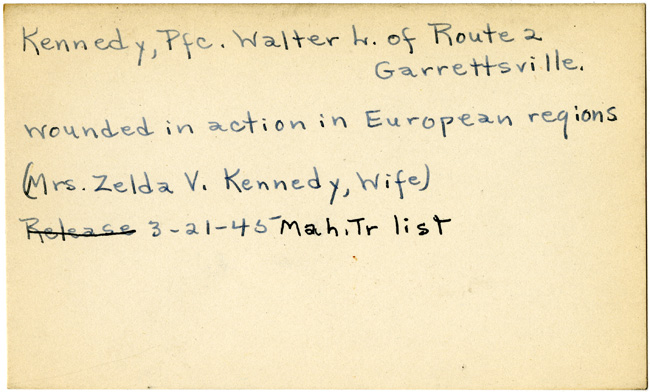 Kennedy, Pfc. Walter L. of Route 2
Garrettsville.
wounded in action in European regions
(Mrs. Zelda V. Kennedy, Wife)
Release 3-21-45 Mah. Tr list